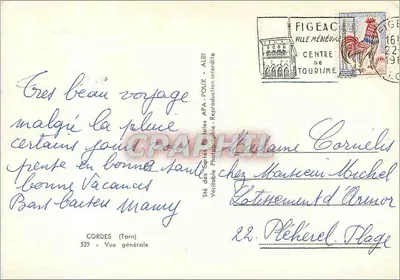 FIGEAC
VILLE MÉDIÉVALE
CENTRE
DE
TOURISME
16H
22
Très beau voyage
malgré la pluie
certains jours
prente en bonne santé
bonne vacances
Bons baisers Mamy
CORDES (Tarn)
523 - Vue générale
Sté des Cartes Postales APA-POUX - ALBI
Véritable Photographie - Reproduction interdite
CPARAMA
Madame Cornélis
chez Monsieur Michel
Lotissement d'Armor
22 Pléhérel. Plage